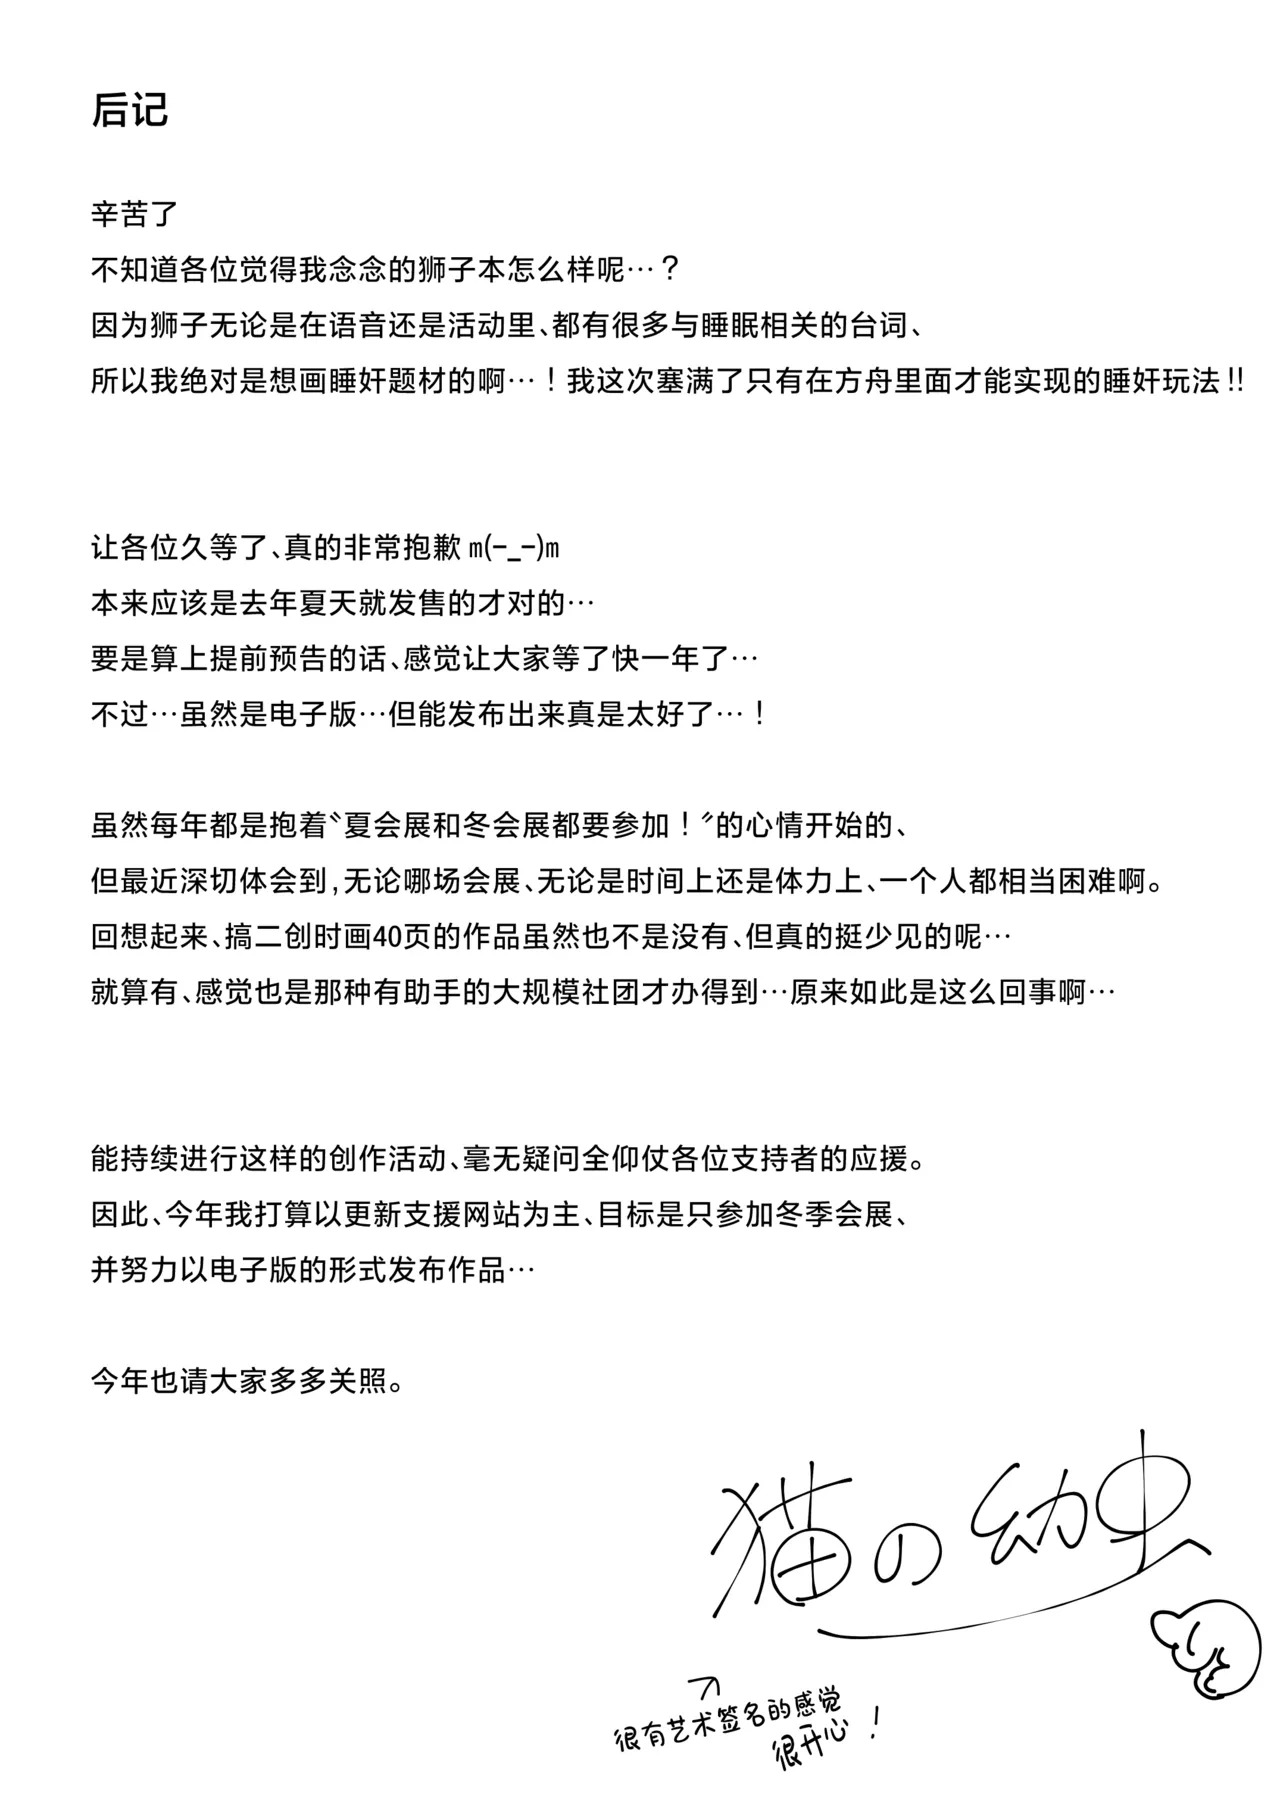 后记
辛苦了
不知道各位觉得我念念的狮子本怎么样呢…？
因为狮子无论是在语音还是活动里、都有很多与睡眠相关的台词、
所以我绝对是想画睡奸题材的啊…！我这次塞满了只有在方舟里面才能实现的睡奸玩法!!
让各位久等了、真的非常抱歉 m(-_-)m
本来应该是去年夏天就发售的才对的…
要是算上提前预告的话、感觉让大家等了快一年了…
不过…虽然是电子版…但能发布出来真是太好了…！
虽然每年都是抱着〝夏会展和冬会展都要参加！〞的心情开始的、
但最近深切体会到,无论哪场会展、无论是时间上还是体力上、一个人都相当困难啊。
回想起来、搞二创时画40页的作品虽然也不是没有、但真的挺少见的呢…
就算有、感觉也是那种有助手的大规模社团才办得到…原来如此是这么回事啊…
能持续进行这样的创作活动、毫无疑问全仰仗各位支持者的应援。
因此、今年我打算以更新支援网站为主、目标是只参加冬季会展、
并努力以电子版的形式发布作品…
今年也请大家多多关照。
猫の幼虫
很有艺术签名的感觉
很开心！